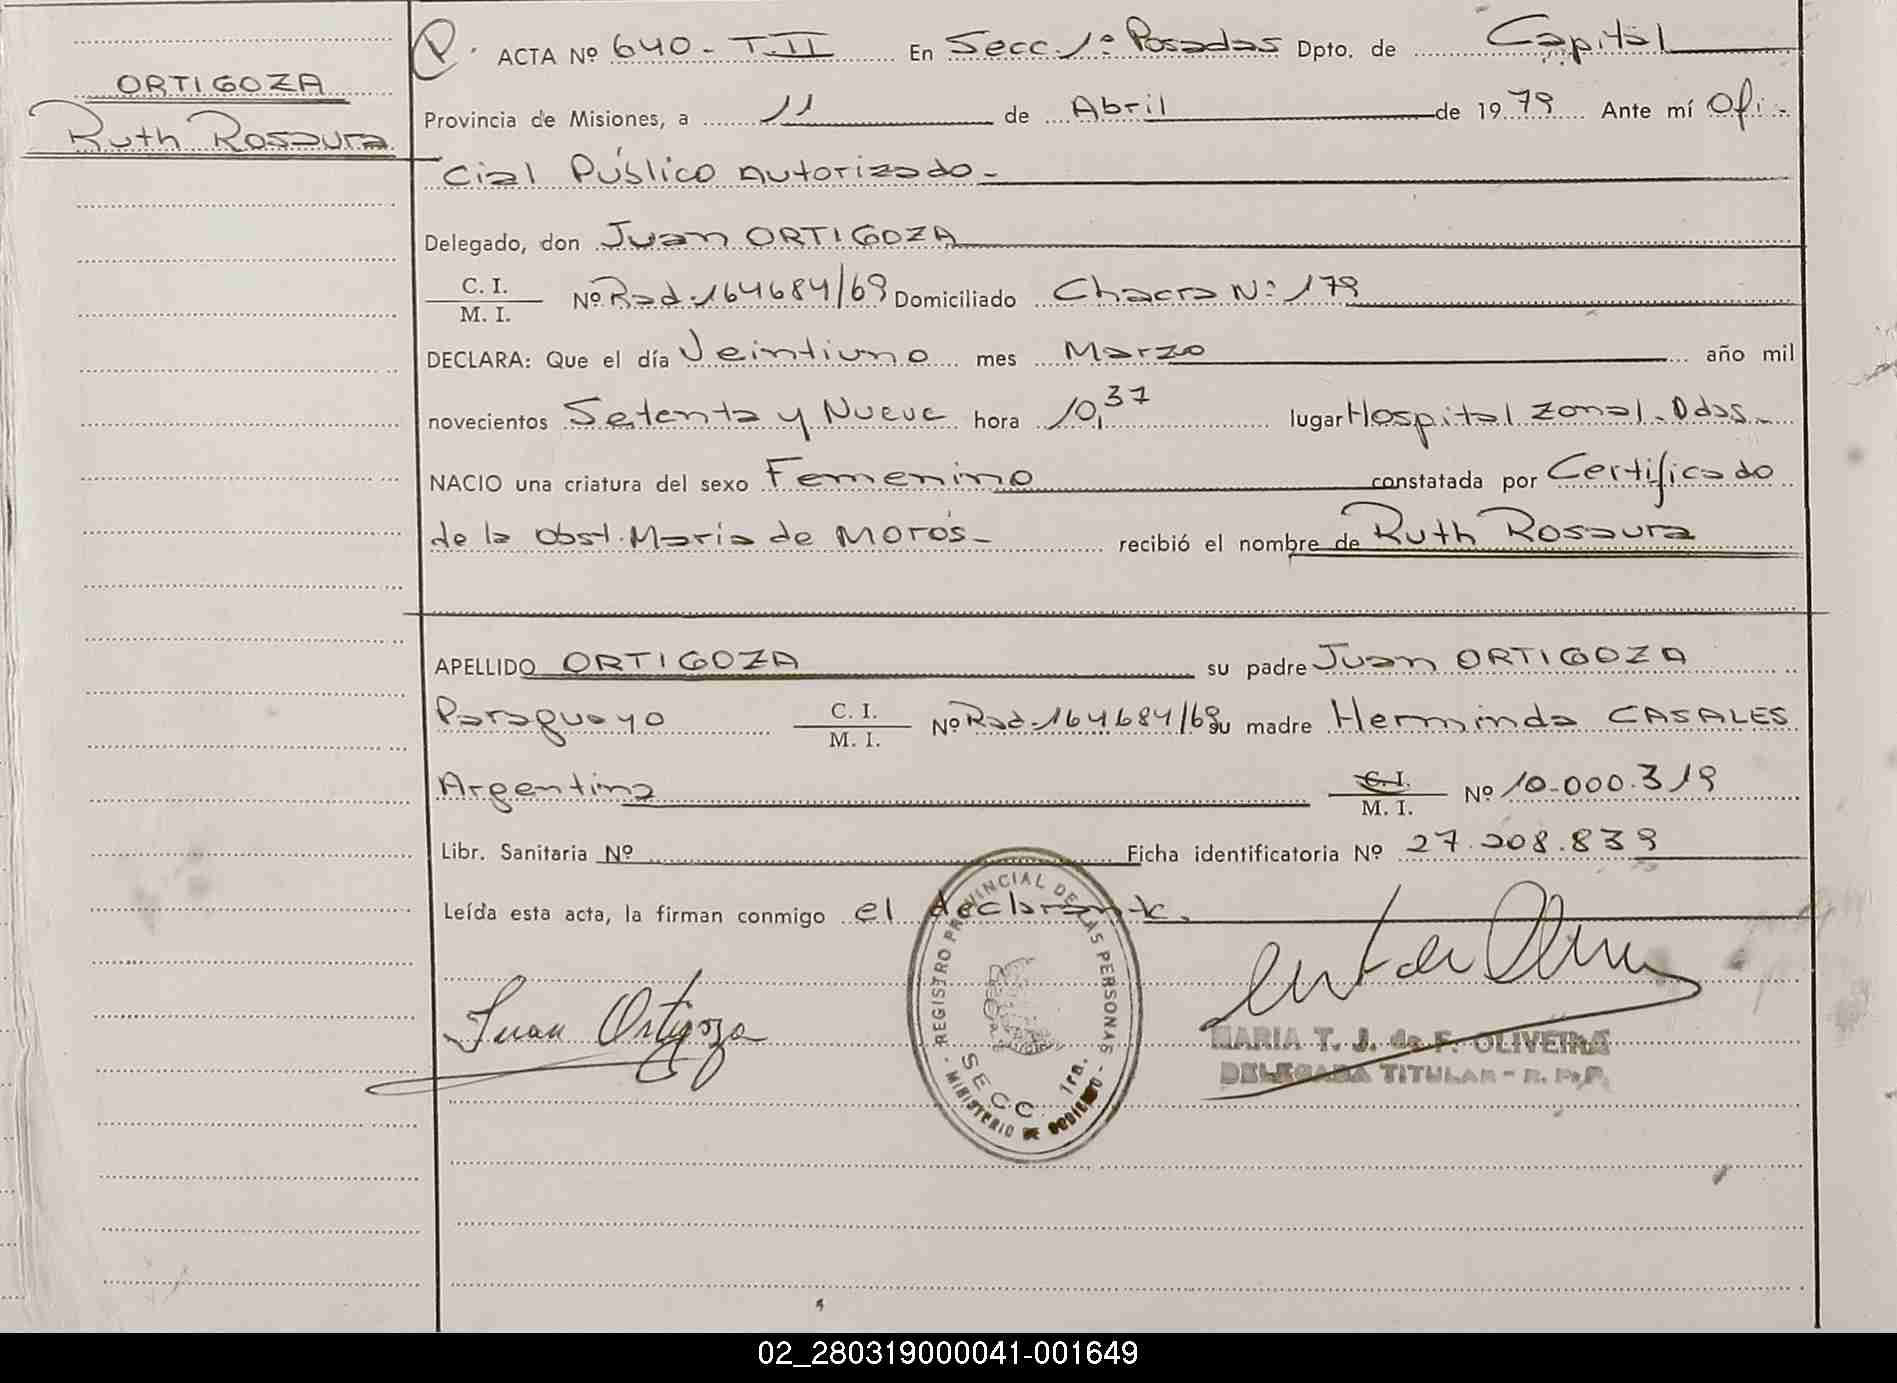 ORTIGOZA
Ruth Rosaura
P. ACTA Nº 640 - T.II En Secc. 1ª Posadas Dpto. de Capital
Provincia de Misiones, a 11 de Abril de 1979 Ante mí Ofi-
cial Público Autorizado-
Delegado, don Juan ORTIGOZA
C. I.
M. I. Nº Rad. 164684/69 Domiciliado Chacra Nº 179
DECLARA: Que el día Veintiuno mes Marzo año mil
novecientos Setenta y Nueve hora 10,37 lugar Hospital Zonal. Pdas.-
NACIO una criatura del sexo Femenino constatada por Certificado
de la Obst. Maria de MOROS- recibió el nombre de Ruth Rosaura
APELLIDO ORTIGOZA su padre Juan ORTIGOZA
Paraguayo C. I. M. I. Nº Rad. 164684/69 su madre Herminda CASALES
Argentina C. I. M. I. Nº 10.000.319
Libr. Sanitaria Nº Ficha identificatoria Nº 27.208.839
Leída esta acta, la firman conmigo el declarante.
Juan Ortigoza
REGISTRO PROVINCIAL DE LAS PERSONAS
SECC. 1ra.
- MINISTERIO DE GOBIERNO -
MARIA T. J. de F. OLIVEIRA
DELEGADA TITULAR - R. P. P.
02_280319000041-001649